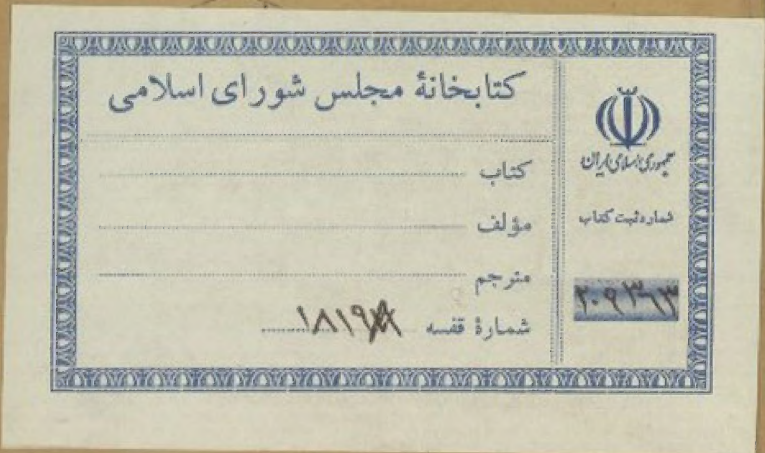 کتابخانهٔ مجلس شورای اسلامی
کتاب
مؤلف
مترجم
شمارهٔ قفسه
جمهوری اسلامی ایران
شماره ثبت کتاب
۲۰۹۳۶۳